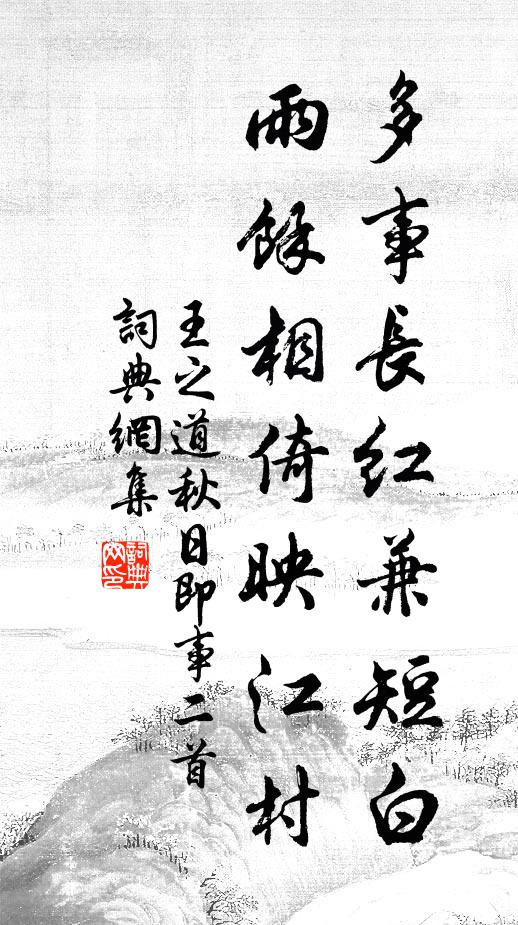 多事長紅兼短白
雨餘相倚映江村
王之道秋日即事二首
詞典網集
詞典网印